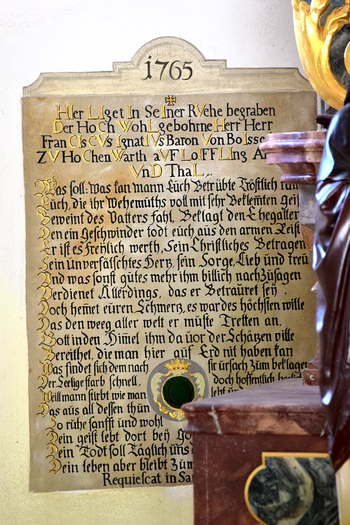 1765
HIer LIget In SeIner RVehe begraben
Der HoCh WohLgebohrne Herr Herr
FranCIsCVs IgnatIVs Baron Von BoIsse
ZV HoChenWarth aVf LoffLIng A
VnD ThaL
Was soll, was kan mann Euch Betrübte Tröstlich
Euch, die ihr Wehemüths voll mit sehr Beklemten geis
Beweint des Vatters fahl, Beklagt den Ehegatten
Den ein Geschwinder todt euch aus den armen Zeist
Er ist es Freÿlich werth, Sein Christliches Betragen
Sein Unverfälschtes Hertz, sein Sorge, Lieb und treü
Und was sonst gütes mehr ihm billich nachzüsagen
Verdienet Allerdings, das er Betraüret seÿ.
Doch hemet eüren Schmertz, es war des höchsten wille
Das den weeg aller welt er müste Tretten an.
Gott in den Himel ihm da vor der Schätzen ville
Bereithet, die man hier auf Erd nit haben kan
Was findet sich dem nach ir ürsach Züm beklagen
Der Seelige starb schnell, doch hoffentlich
Weill mann stirbt wie man lebt
Was aüs all dessen thün
So rühe sanfft und wohl
Dein geist lebt dort beÿ
Dein Todt soll Täglich uns
Dein leben aber bleibt Züm
Requiescat in